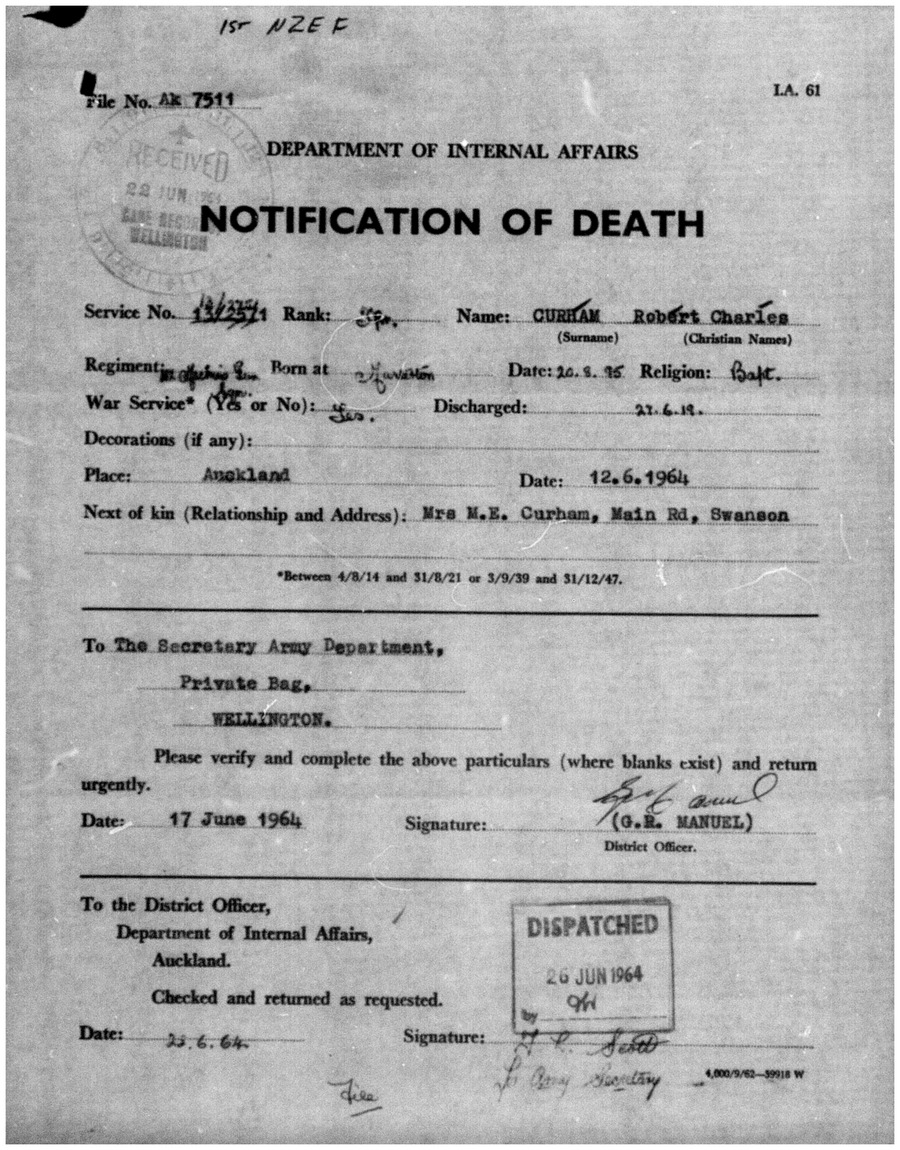 1st NZEF
File No. Ak 7511
I.A. 61
RECEIVED
22 JUN 1964
BASE RECORDS
WELLINGTON
DEPARTMENT OF INTERNAL AFFAIRS
NOTIFICATION OF DEATH
Service No. 13/2571 Rank: Name: CURHAM Robert Charles
(Surname) (Christian Names)
Regiment: Born at Date: 20.8.95 Religion: Bapt.
War Service* (Yes or No): Yes. Discharged: 27.6.19.
Decorations (if any):
Place: Auckland Date: 12.6.1964
Next of kin (Relationship and Address): Mrs M.E. Curham, Main Rd, Swanson
*Between 4/8/14 and 31/8/21 or 3/9/39 and 31/12/47.
To The Secretary Army Department,
Private Bag,
WELLINGTON.
Please verify and complete the above particulars (where blanks exist) and return
urgently.
Date: 17 June 1964 Signature: (G.R. MANUEL)
District Officer.
To the District Officer,
Department of Internal Affairs,
Auckland.
Checked and returned as requested.
DISPATCHED
26 JUN 1964
by
Date: 23.6.64. Signature: Scott
for Army Secretary
4,000/9/62—39918 W
File